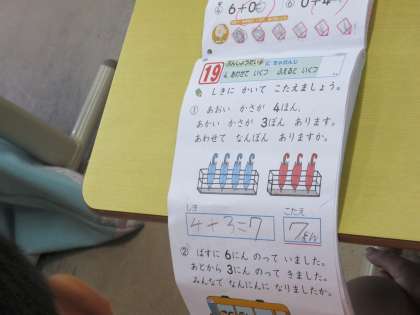 6+0
6 0+4
19 ぶんしょうだいに ちゃれんじ
4. あわせて いくつ ふえると いくつ
しきに かいて こたえましょう。
① あおい かさが 4ほん、
あかい かさが 3ぼん あります。
あわせて なんぼん ありますか。
しき こたえ
4+3=7 7ほん
② ばすに 6にん のって いました。
あとから 3にん のって きました。
みんなで なんにんに なりましたか。